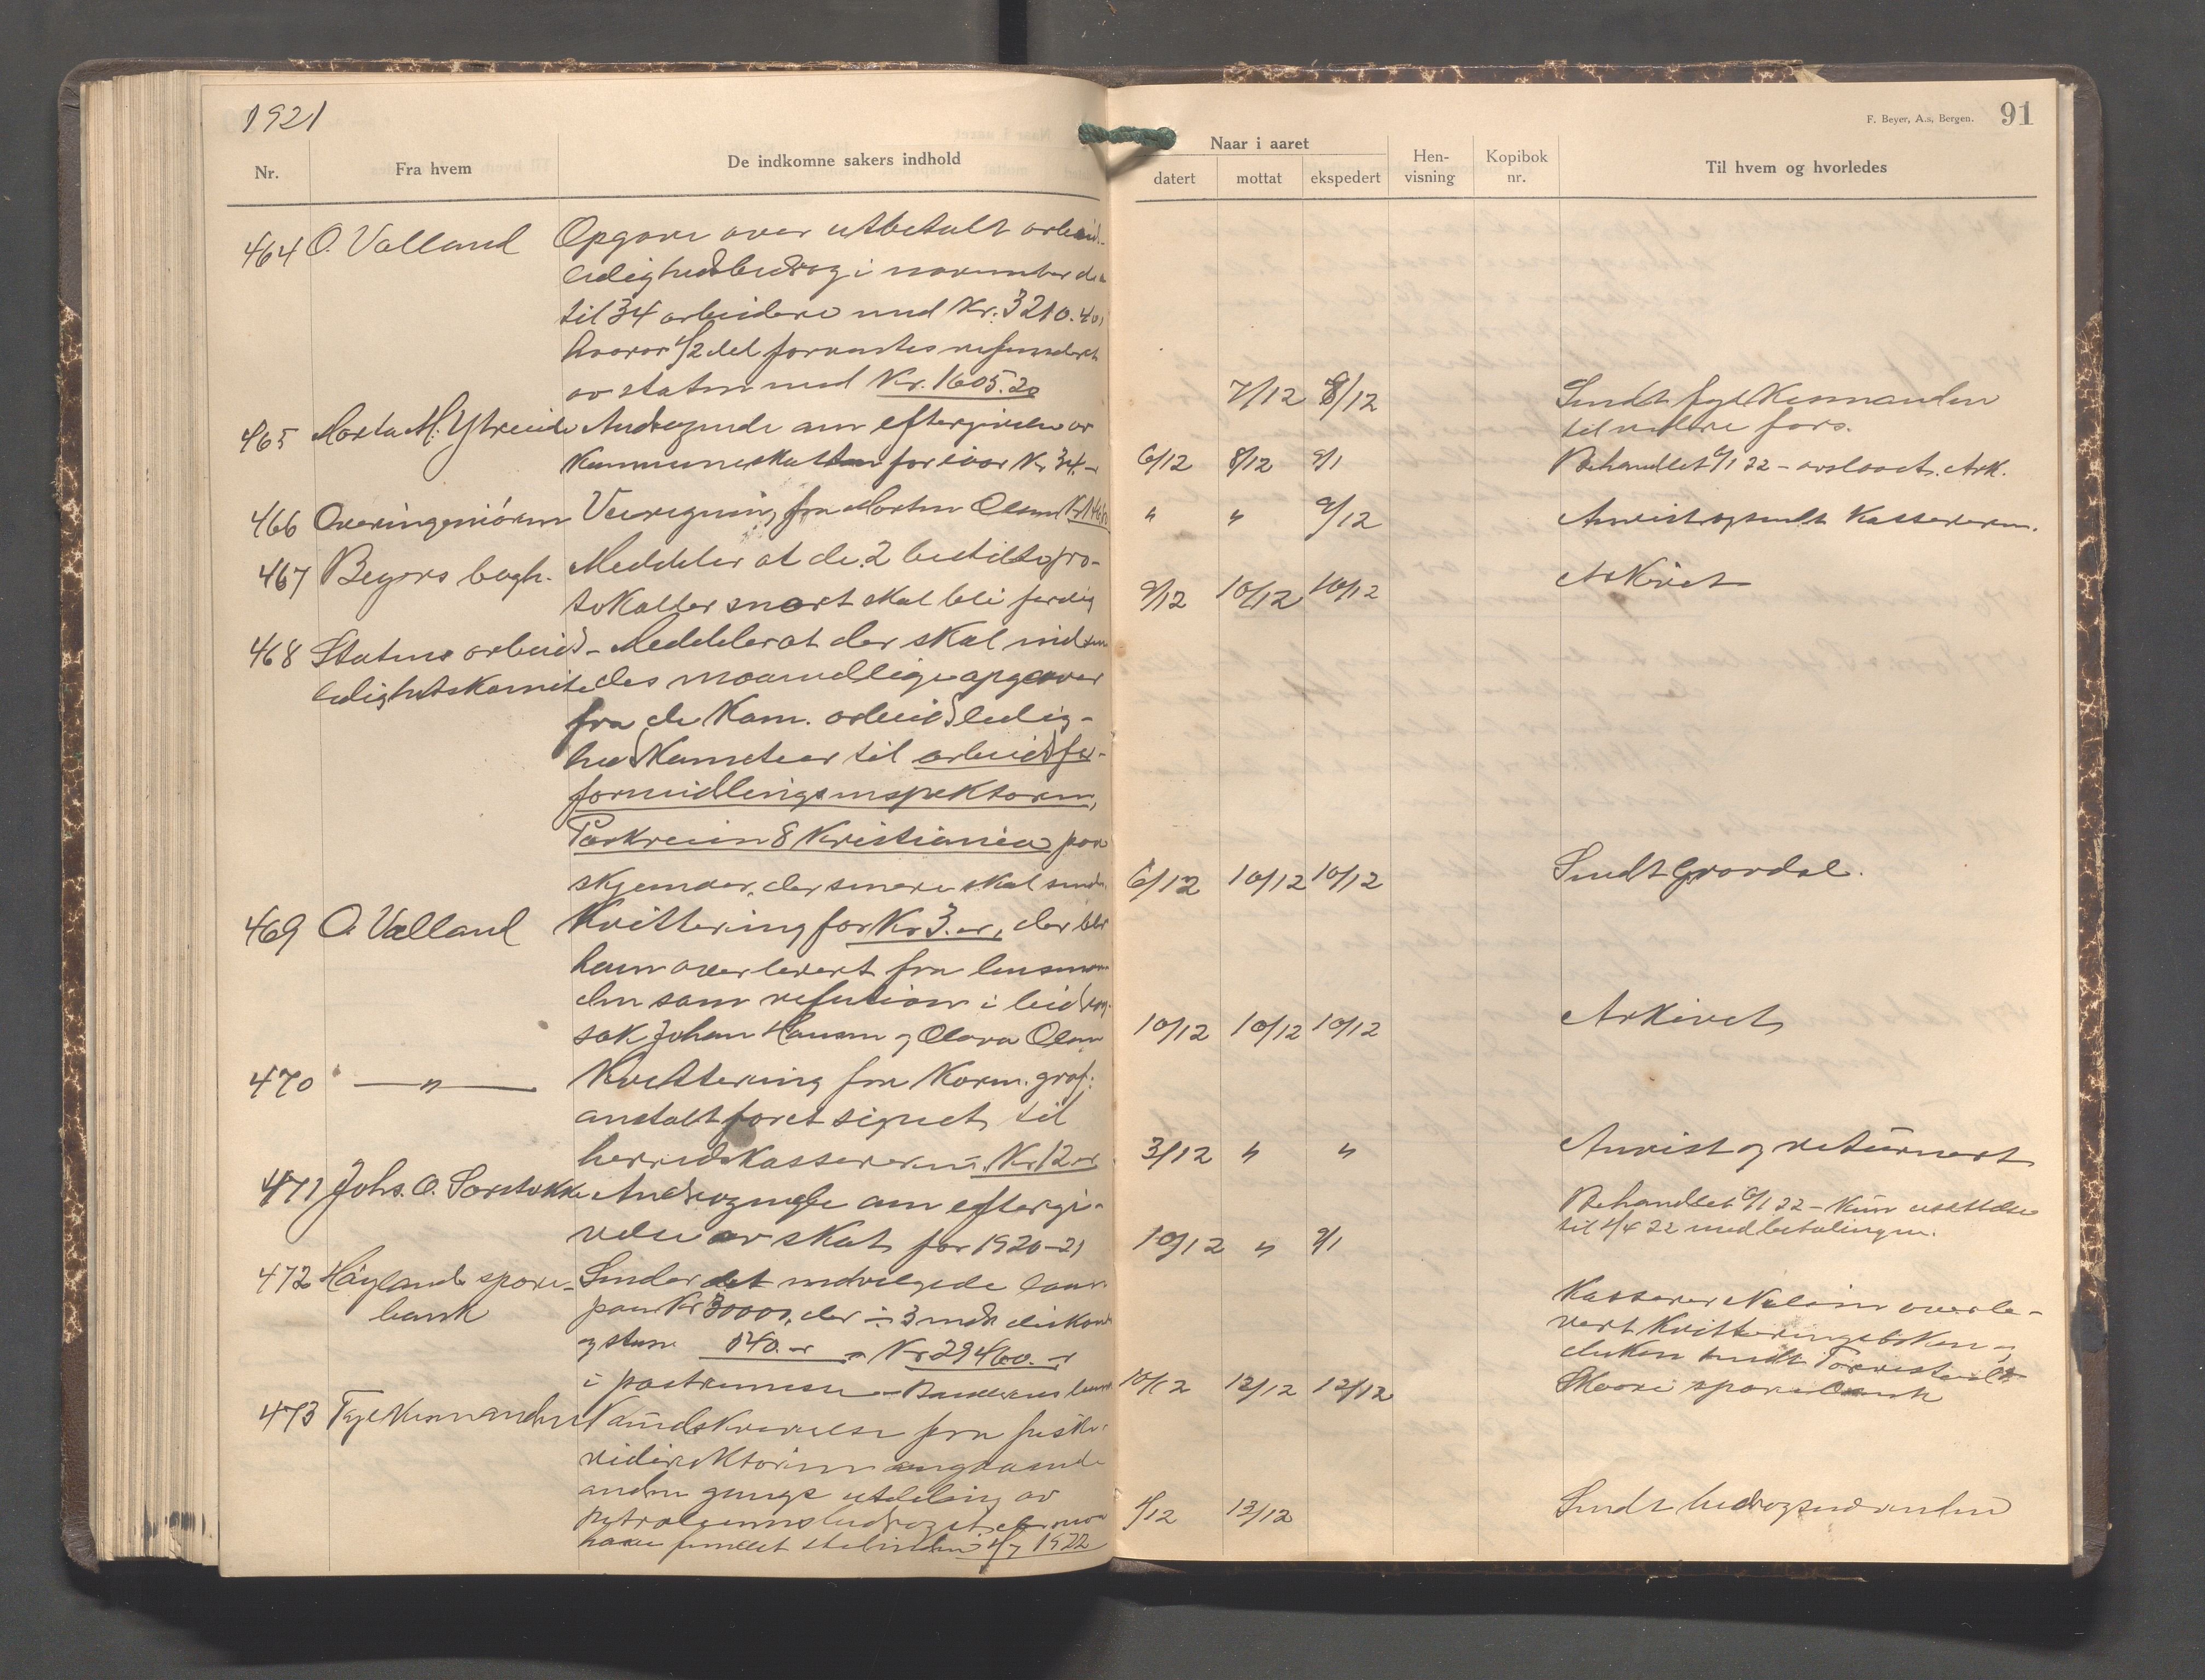 1921
F. Beyer, A.s, Bergen. 91
Nr. Fra hvem De indkomne sakers indhold
Naar i aaret
datert mottat ekspedert
Hen-
visning
Kopibok
nr.
Til hvem og hvorledes
464 O. Valland Opgave over utbetalt arbeids-
ledighedsbidrag i november
til 34 arbeidere med Kr. 3210.40,
hvorav 1/2 del forventes refunderet
av staten med Kr. 1605.20 7/12 8/12 Sendt fylkesmanden
til videre fors.
465 Marta M. Ytreeide Andragende om eftergivelse av
Kommuneskatten for iaar Kr 34.- 6/12 8/12 9/1 Behandlet 6/1 22 - avslaaet. Ark.
466 Overingeniøren Veiregning fra Morten Olsen " " 9/12 Anvist og sendt Kassereren.
467 Beyers bogh. Meddeler at de 2 bestilte pro-
tokoller snart skal bli ferdig 9/12 10/12 10/12 Arkivet
468 Statens arbeids- Meddeler at der skal indsen
ledighetskomite des maanedlige opgaver
fra de Kom. arbeidsledig-
heds Kometeer til arbeidsfor-
formidlingsinspektøren,
Parkveien 8 Kristiania paa
skjemaer, der senere skal sendes 6/12 10/12 10/12 Sendt Grovdal.
469 O. Valland Kvittering for Kr 3.-, der blir
ham overlevert fra lensman
den som refusion i bidrags
sak Johan Hansen og Olava Olsen 10/12 10/12 10/12 Arkivet
470 — " — Kvittering fra Korm. graf.
anstalt for et signet til
herredskassereren. Kr 12.- 3/12 " " Anvist og returnert
471 Johs. O. Sørstokke Andragende om eftergi-
velse av skat for 1920-21 10/12 " 9/1 Behandlet 6/1 22 - Kun utsættelse
til 1/4 22 med betalingen.
472 Høyland spare-
bank Sender det indvilgede laan
paa Kr 30000, der ÷ 3 mdr diskonto
og stem 540.- = Kr 29460.-
i postremisse 10/12 12/12 12/12 Kasserer overle-
vert Kvitteringsboken og
sendt
Skaare sparebank
473 Fylkesmanden Rundskrivelse fra fiske-
ridirektøren angaaende
anden gangs utdeling av
petroleumsbidraget, der maa
være fundet sted inden 1/7 1922 9/12 13/12 Sendt